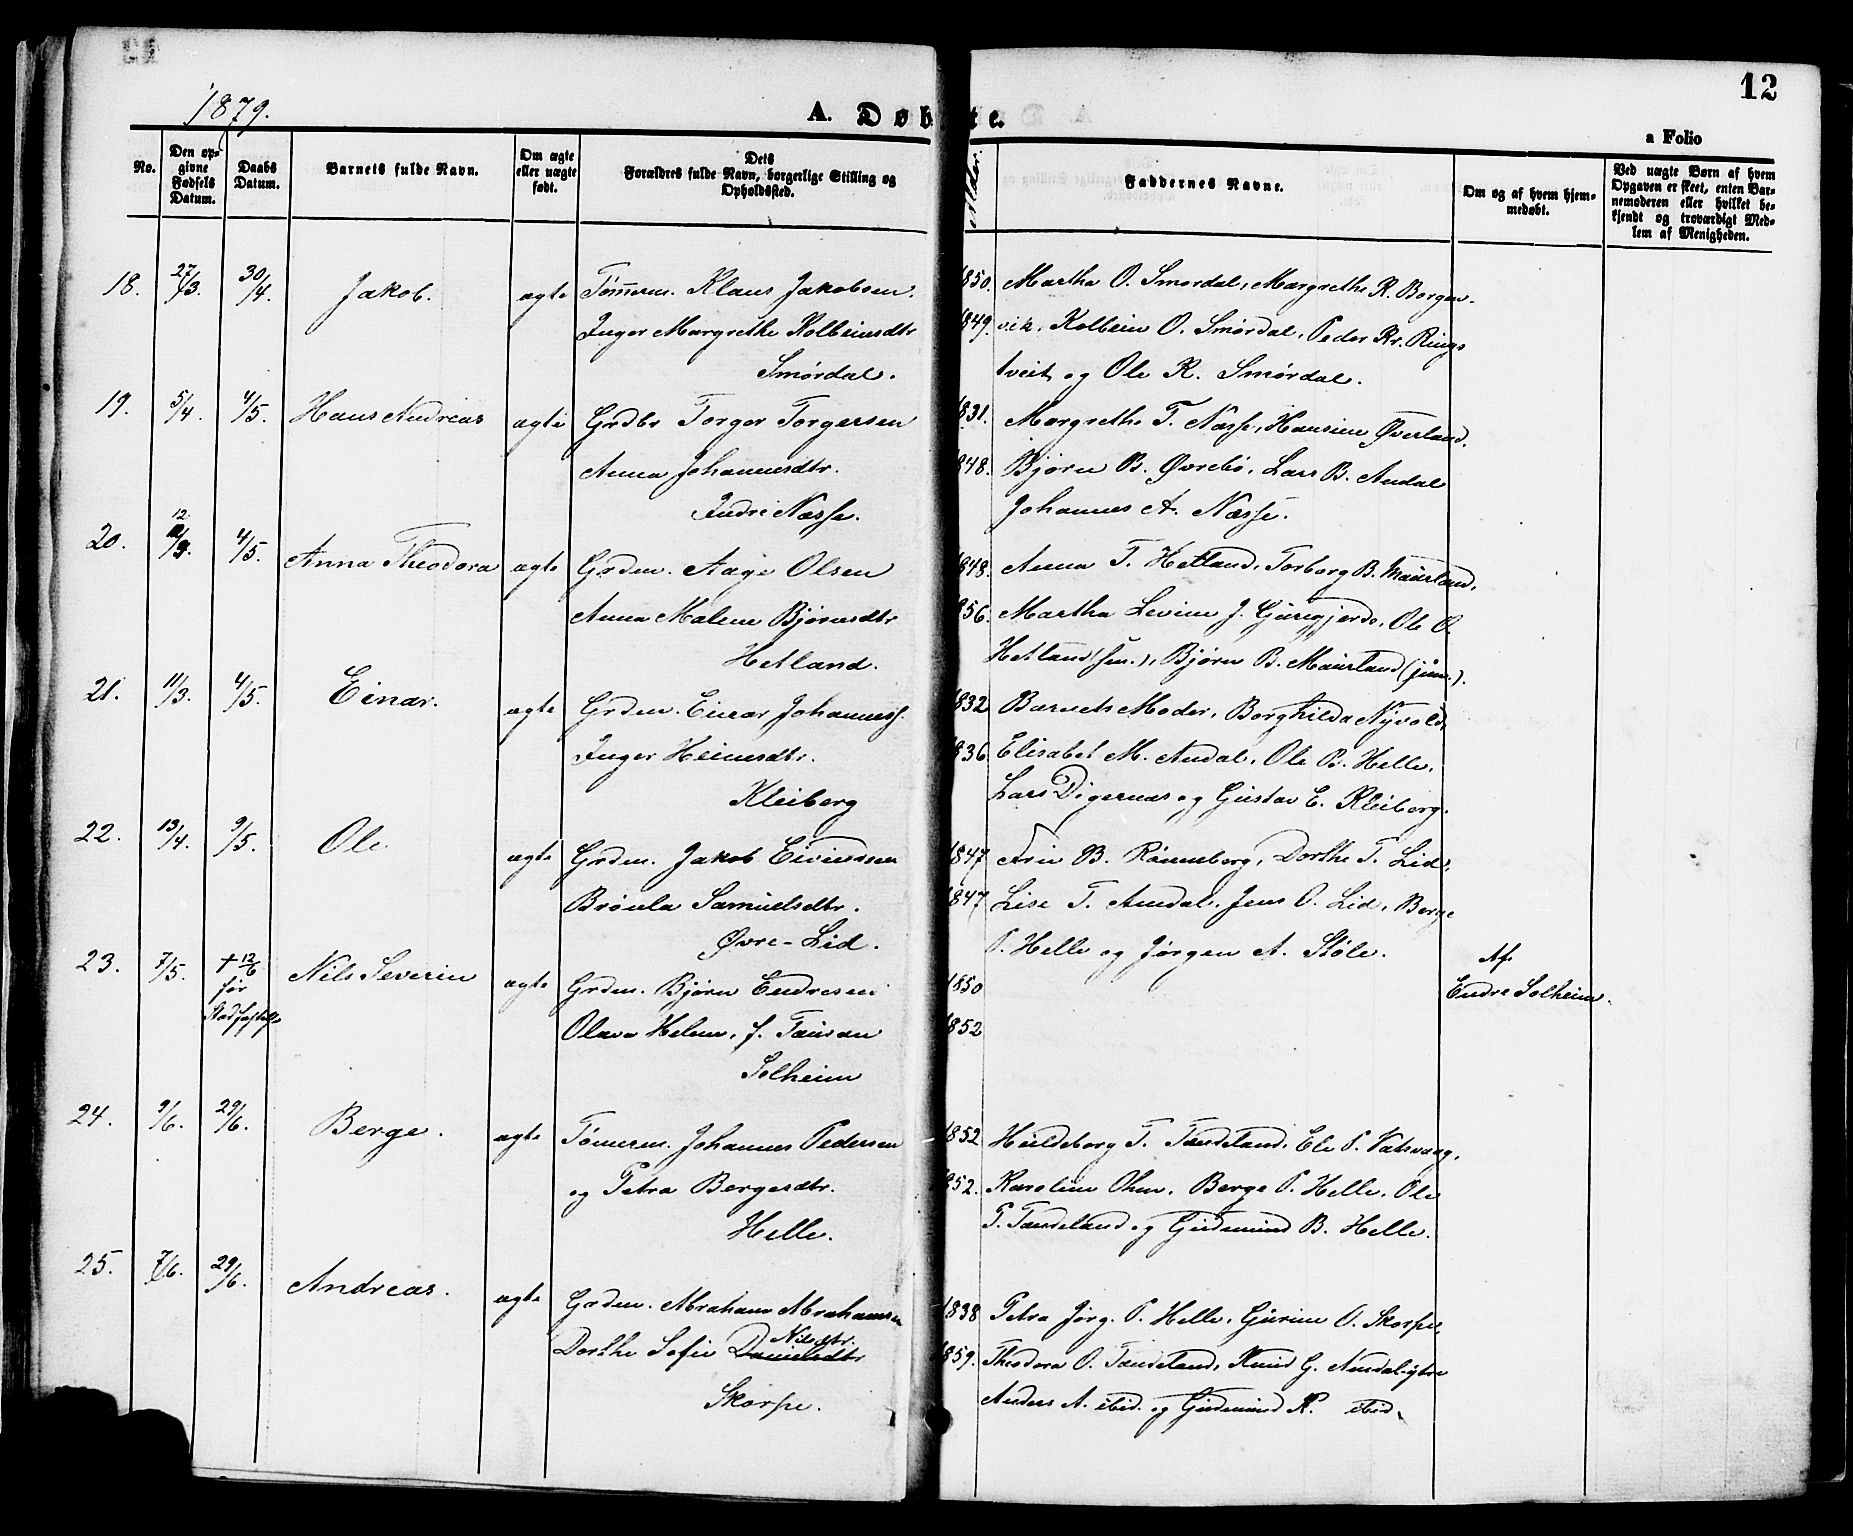 12
1879.
A. Døbte.
a Folio
No.
Den op-
givne
Fødsels
Datum.
Daabs
Datum.
Barnets fulde Navn.
Om ægte
eller uægte
født.
Dets
Forældres fulde Navn, borgerlige Stilling og
Opholdssted.
Alder.
Faddernes Navne.
Om og af hvem hjem-
medøbt.
Ved uægte Børn af hvem
Opgaven er skeet, enten Bar-
nemoderen eller hvilket be-
kjendt og troværdigt Med-
lem af Menigheden.
18. 27/3. 30/4. Jakob. ægte Tømerm. Klaus Jakobsen. 1850. Martha O. Smørdal, Margrethe K. Borgen-
Inger Margrethe Kolbeinsdtr 1849. vik, Kolbein O. Smørdal, Peder Kr. Rings
Smørdal. tveit og Ole K. Smørdal.
19. 5/4. 4/5. Hans Andreas ægte Grdbr Torger Torgersen 1831. Margrethe T. Næsse, Hansine Øverland.
Anna Johannesdtr. 1848. Bjørn B. Øvrebø, Lars B. Andal
Indre Næsse. Johannes A. Næsse.
20. 12/3. 4/5. Anna Theodora ægte Grdm. Aage Olsen 1848. Anna T. Hetland, Torborg B. Maurland,
Anna Malene Bjørnsdtr 1856. Martha Levine J. Gjuregjerde, Ole O.
Hetland. Hetland (sen.), Bjørn B. Maurland (jun.).
21. 11/3. 4/5. Einar. ægte Grdm. Einar Johanness. 1832 Barnets Moder, Borghilda Nyvold,
Inger Heinesdtr. 1836. Elisabet M. Andal, Ole B. Helle,
Kleiberg Lars Digernæs og Gustav E. Kleiberg.
22. 13/4. 9/5. Ole. ægte Grdm. Jakob Eivindsen 1847 B. Rønneberg, Dorthe T. Lid,
Brønla Samuelsdtr. 1847 Lise T. Andal, Jens O. Lid, Berge
Øvre-Lid. P. Helle og Jørgen A. Støle.
23. 7/5. † 12/6 Nils Severin ægte Grdm. Bjørn Endresen 1850 Af
før Endre Solheim.
Stadfæstelse Olava Helene, f. Tausan 1852
Solheim
24. 9/6. 29/6. Berge. ægte Tømerm. Johannes Pedersen 1852. Huldeborg T. Tandeland, Eli P. Vatsvaag,
og Petra Bergesdtr. 1852. Karoline Ohm, Berge P. Helle, Ole
Helle. P. Tandeland og Gudmund B. Helle.
25. 7/6. 29/6. Andreas. ægte Grdm. Abraham Abrahamsen 1838 Petra Jørg. P. Helle, Gurine O. Skorpe,
Nilsdtr.
Dorthe Sofie Danielsdtr 1859. Theodora O. Tandeland, Knud G. Andal-ytre
Skorpe. Anders A. ibid. og Gudmund K. ibid.